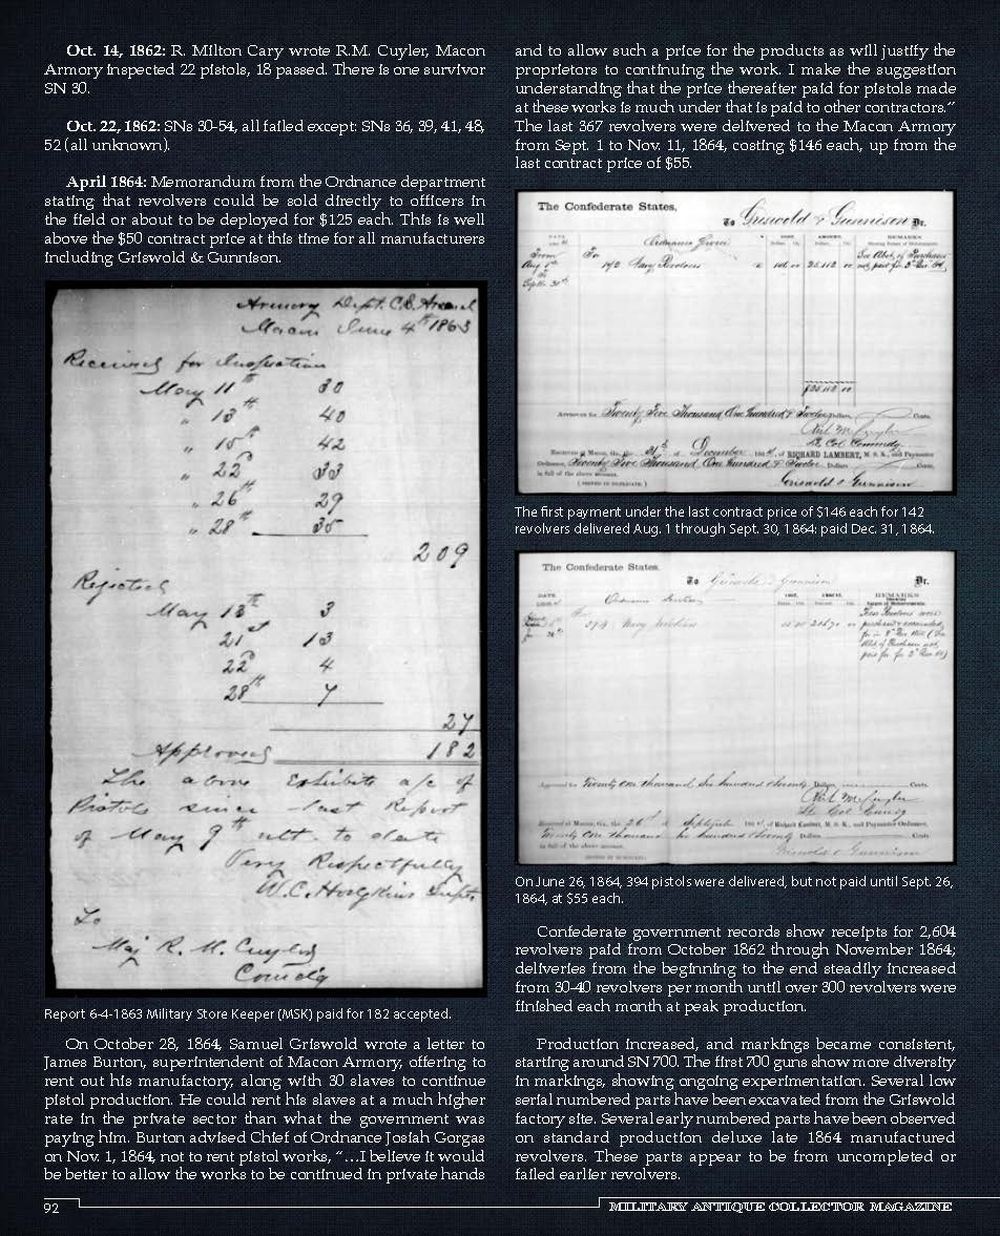 Oct. 14, 1862: R. Milton Cary wrote R.M. Cuyler, Macon
Armory inspected 22 pistols, 18 passed. There is one survivor
SN 30.
Oct. 22, 1862: SNs 30-54, all failed except: SNs 36, 39, 41, 48,
52 (all unknown).
April 1864: Memorandum from the Ordnance department
stating that revolvers could be sold directly to officers in
the field or about to be deployed for $125 each. This is well
above the $50 contract price at this time for all manufacturers
including Griswold & Gunnison.
Armory Dept. C.S. Arsenal
Macon June 4th 1863
Received for Inspection
May 11th 30
" 13th 40
" 15th 42
" 22d 33
" 26th 29
" 28th 35
209
Rejected
May 13th 3
21st 13
22d 4
28th 7
27
Approved 182
The above Exhibits a/c of
Pistols since last Report
of May 9th ult. to date
Very Respectfully
W.C. Hodgkins Supt
To
Maj R. M. Cuyler
Comdg
Report 6-4-1863 Military Store Keeper (MSK) paid for 182 accepted.
On October 28, 1864, Samuel Griswold wrote a letter to
James Burton, superintendent of Macon Armory, offering to
rent out his manufactory, along with 30 slaves to continue
pistol production. He could rent his slaves at a much higher
rate in the private sector than what the government was
paying him. Burton advised Chief of Ordnance Josiah Gorgas
on Nov. 1, 1864, not to rent pistol works, “…I believe it would
be better to allow the works to be continued in private hands
and to allow such a price for the products as will justify the
proprietors to continuing the work. I make the suggestion
understanding that the price thereafter paid for pistols made
at these works is much under that is paid to other contractors.”
The last 367 revolvers were delivered to the Macon Armory
from Sept. 1 to Nov. 11, 1864, costing $146 each, up from the
last contract price of $55.
The Confederate States,
To Griswold & Gunnison Dr.
DATE COST. AMOUNT. REMARKS
From To Ordnance
Aug Navy Revolvers
Sept. 30th
Twenty Five Thousand One Hundred & Twelve Dollars Cents.
Lt. Col. Comndg
31st December RICHARD LAMBERT, M. S. K., and Paymaster
Ordnance, Twenty Five Thousand One Hundred & Twelve Dollars Cents,
in full of the above account.
Griswold & Gunnison
The first payment under the last contract price of $146 each for 142
revolvers delivered Aug. 1 through Sept. 30, 1864: paid Dec. 31, 1864.
The Confederate States.
To Griswold & Gunnison Dr.
DATE. COST. AMOUNT. REMARKS
394 Navy
Twenty one thousand six hundred & seventy Dollars Cents.
Lt Col Comdg
M. S. K., and Paymaster Ordnance,
Twenty one thousand six hundred & seventy Dollars Cents,
in full of the above account.
Griswold & Gunnison
On June 26, 1864, 394 pistols were delivered, but not paid until Sept. 26,
1864, at $55 each.
Confederate government records show receipts for 2,604
revolvers paid from October 1862 through November 1864;
deliveries from the beginning to the end steadily increased
from 30-40 revolvers per month until over 300 revolvers were
finished each month at peak production.
Production increased, and markings became consistent,
starting around SN 700. The first 700 guns show more diversity
in markings, showing ongoing experimentation. Several low
serial numbered parts have been excavated from the Griswold
factory site. Several early numbered parts have been observed
on standard production deluxe late 1864 manufactured
revolvers. These parts appear to be from uncompleted or
failed earlier revolvers.
92
MILITARY ANTIQUE COLLECTOR MAGAZINE